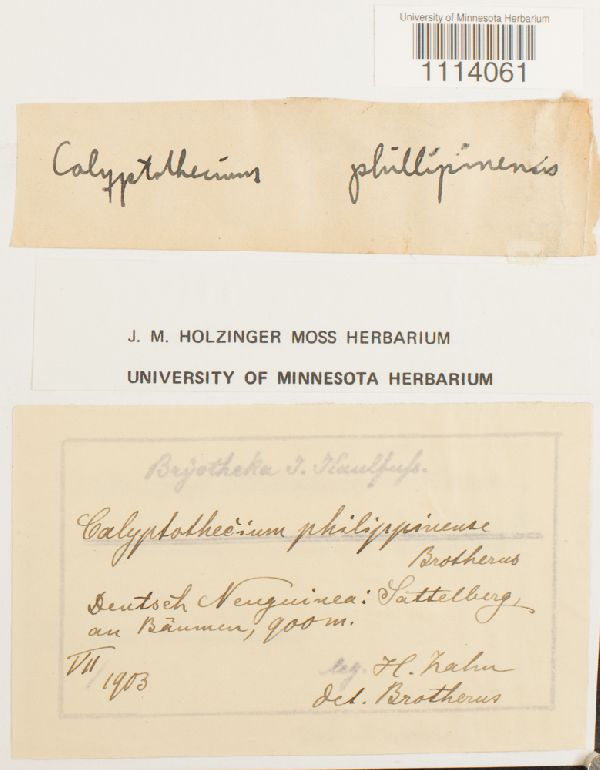 University of Minnesota Herbarium
1114061
Calyptothecium phillipinensis
J. M. HOLZINGER MOSS HERBARIUM
UNIVERSITY OF MINNESOTA HERBARIUM
Bryotheka J. Kaulfuss.
Calyptothecium philippinense
Brotherus
Deutsch Neuguinea: Sattelberg,
an Bäumen, 900 m.
VII/1903
leg. H. Zahn
det. Brotherus